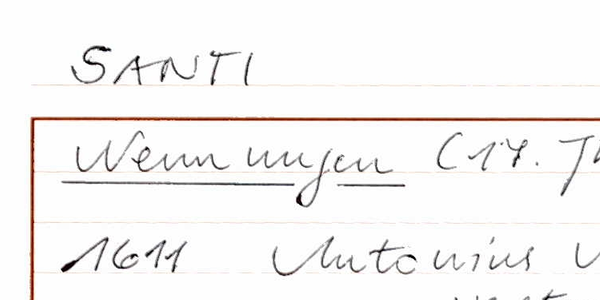 SANTI
Nennungen (17. Jh
1611 Antonius V